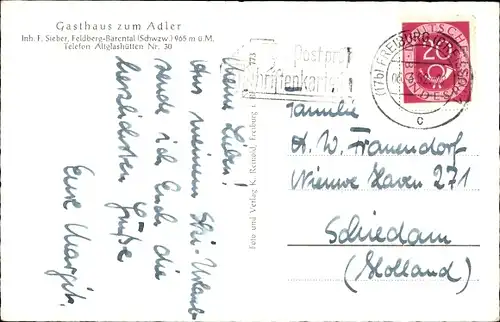 Gasthaus zum Adler
Inh. F. Sieber, Feldberg-Bärental (Schwzw.) 965 m ü.M.
Telefon Altglashütten Nr. 30
Meine Lieben!
Aus meinem Ski-Urlaub
sende ich Euch die
herzlichsten Grüße
Eure Margit.
Foto und Verlag K. Freiburg i.
773
Postprot
(17b) FREIBURG
c
DEUTSCHE
20
BUNDESPOST
Familie
A. W. Frauendorf
Nieuwe Haven 271
Schiedam
(Holland)